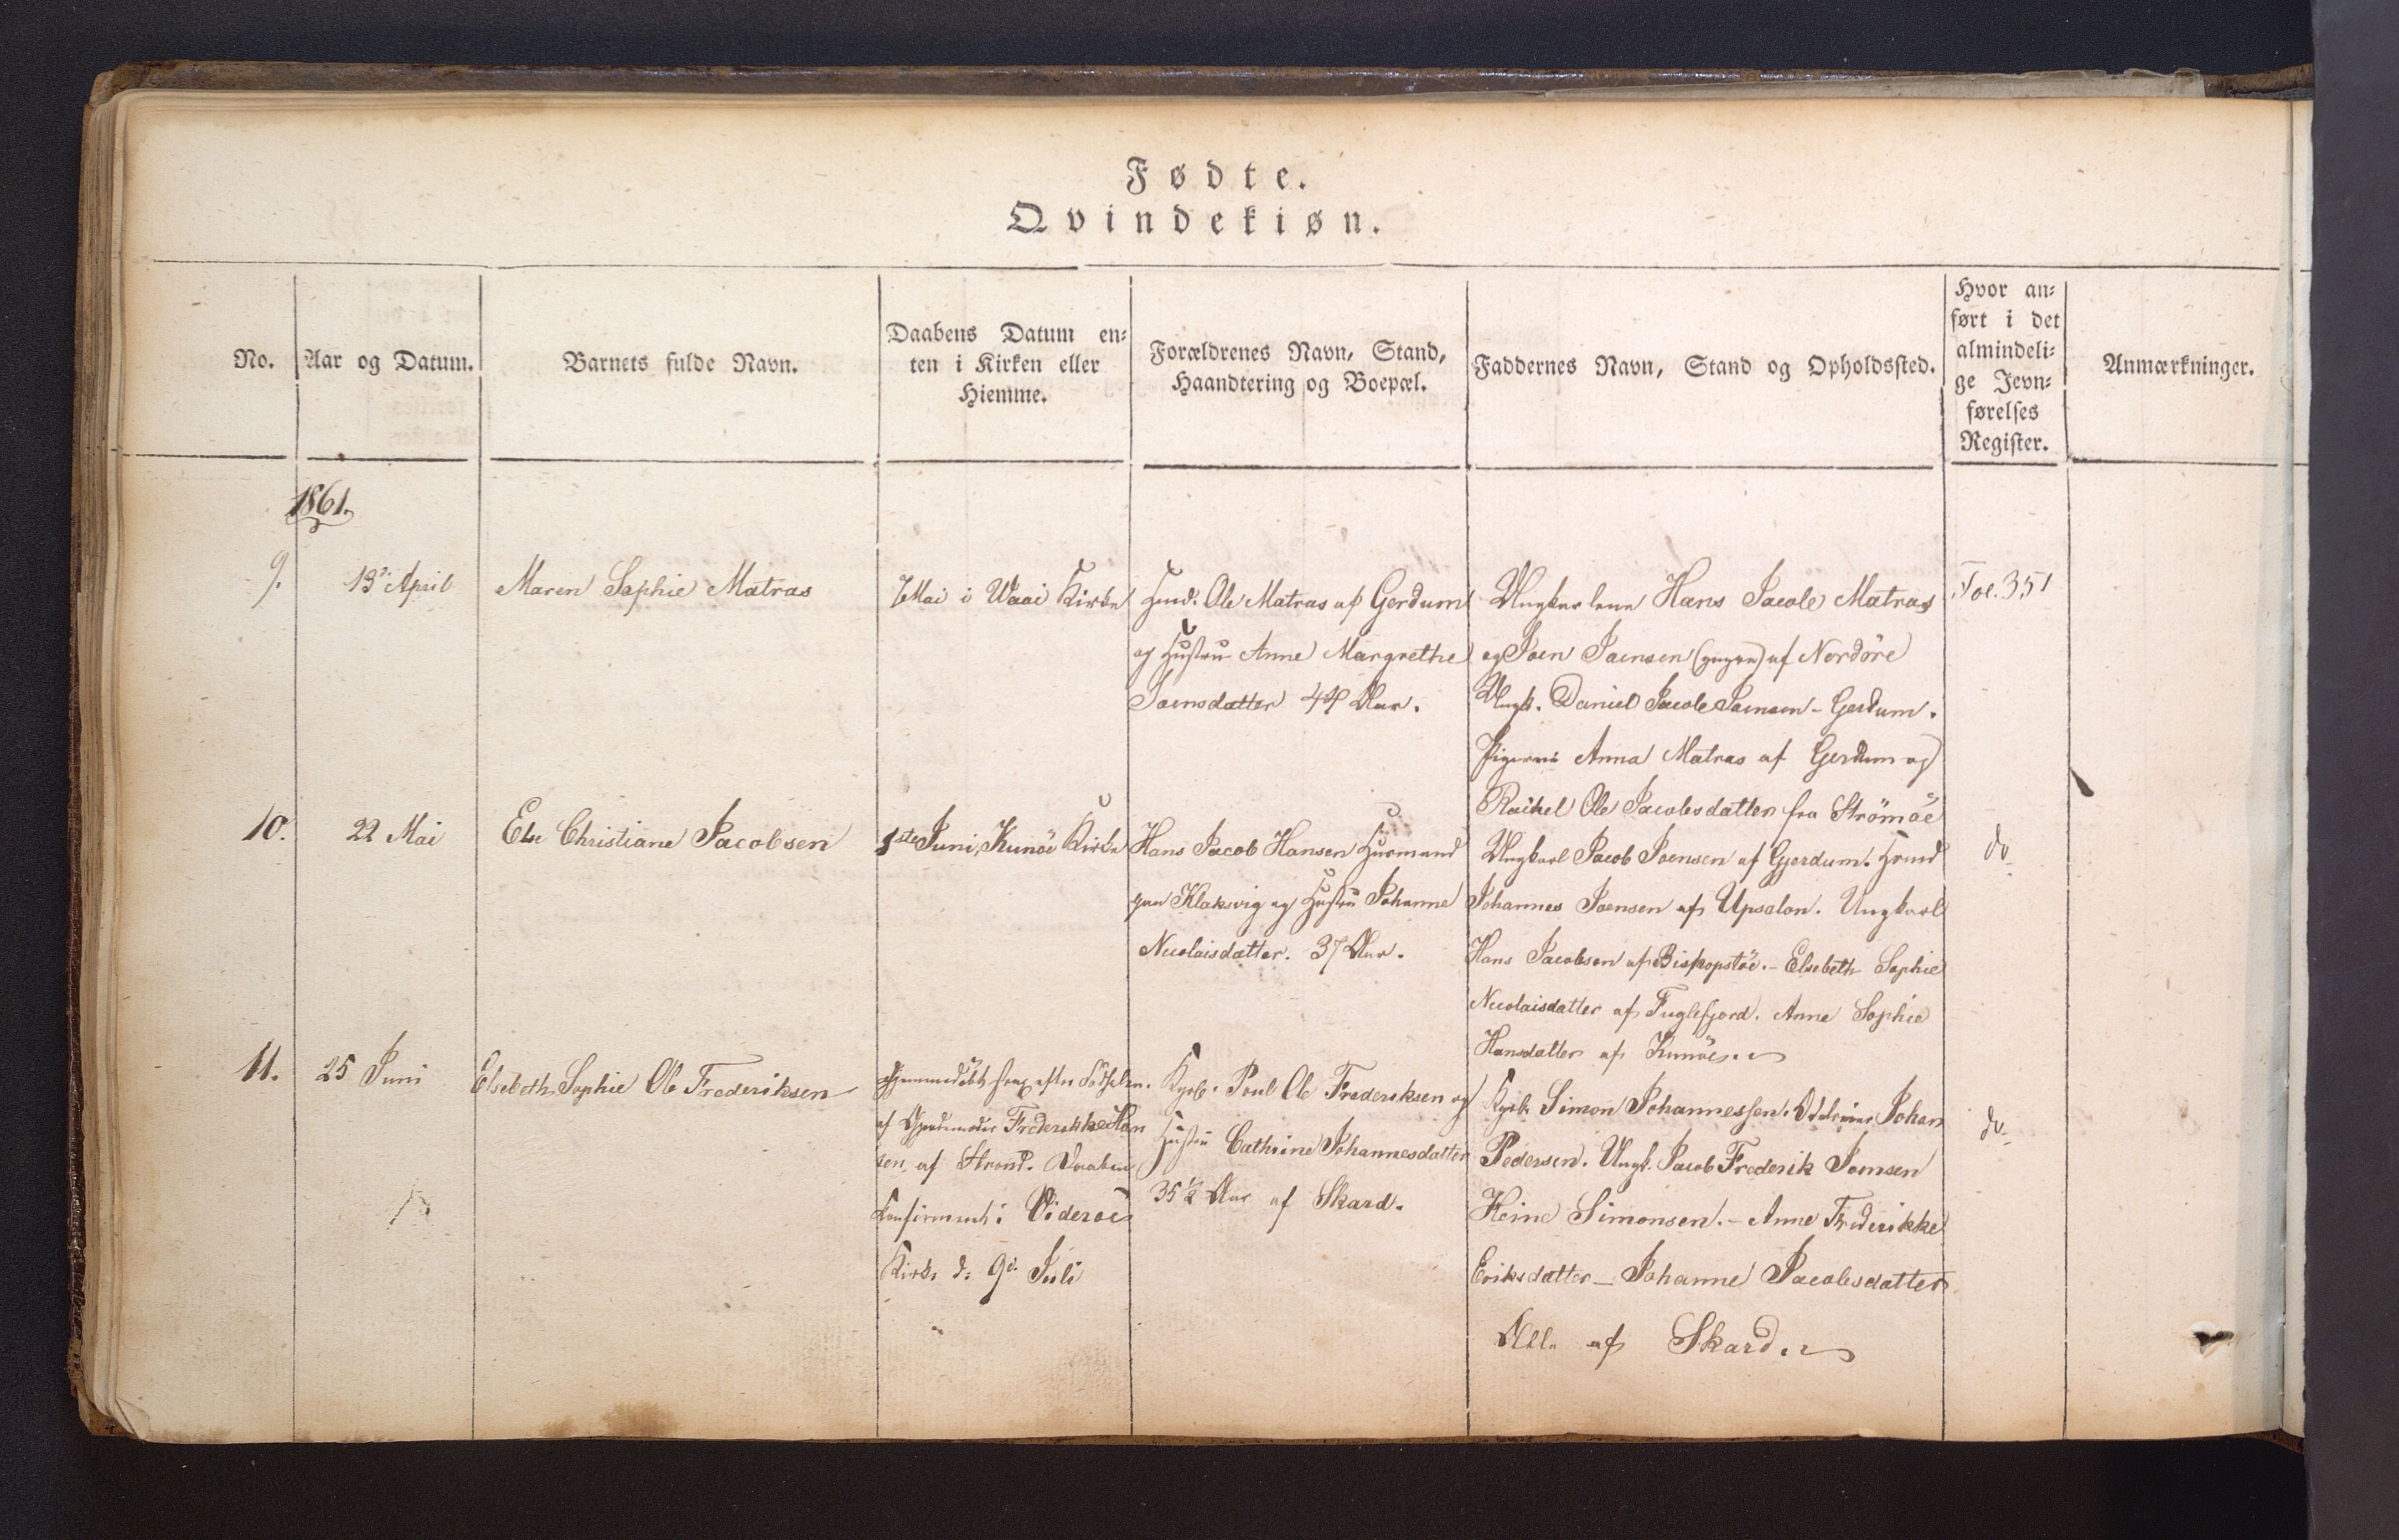 Fødte.
Qvindekiøn.
No.
Aar og Datum.
Barnets fulde Navn.
Daabens Datum en-
ten i Kirken eller
Hiemme.
Forældrenes Navn, Stand,
Haandtering og Boepæl.
Faddernes Navn, Stand og Opholdssted.
Hvor an-
ført i det
almindeli-
ge Jevn-
førelses
Register.
Anmærkninger.
1861.
9.
13de April
Maren Sophie Matras
7 Mai i Waai Kirke
Huusm. Ole Matras af Gerdum
og Hustru Anne Margrethe
Joensdatter 44 Aar.
Ungkarlene Hans Jacob Matras
og Joen Joensen af Nordöre
Ungk. Daniel Jacob Joensen - Gerdum.
Pigerne Anna Matras af Gerdum og
Rachel Ole Jacobsdatter fra Strömöe
Fol. 351
10.
22 Mai
Else Christiane Jacobsen
1ste Juni, Kunöe Kirke
Hans Jacob Hansen Huusmand
paa Klaksvig og Hustru Johanne
Nicolaisdatter. 37 Aar.
Ungkarl Jacob Joensen af Gjerdum.
Johannes Joensen af Upsalon. Ungkarl
Hans Jacobsen af Biskopstöe. - Elsebeth Sophie
Nicolaisdatter af Fuglefjord. Anne Sophie
Hansdatter af Kunöe.
do
11.
25 Juni
Elsebeth Sophie Ole Frederiksen
Hjemmedöbt strax efter Födselen
af Gjordemoder Frederikke Han
sen af Strond. Daaben
Confirmeret i Videröe
Kirke d. 9de Juli
Kgsb. Poul Ole Frederiksen og
Hustru Cathrine Johannesdatter
35 1/2 Aar af Skard.
Kgsb. Simon Johannessen. Johan
Pedersen. Ungk. Jacob Frederik Joensen
Heine Simonsen. - Anne Frederikke
Eriksdatter - Johanne Jacobsdatter
Alle af Skard.
do